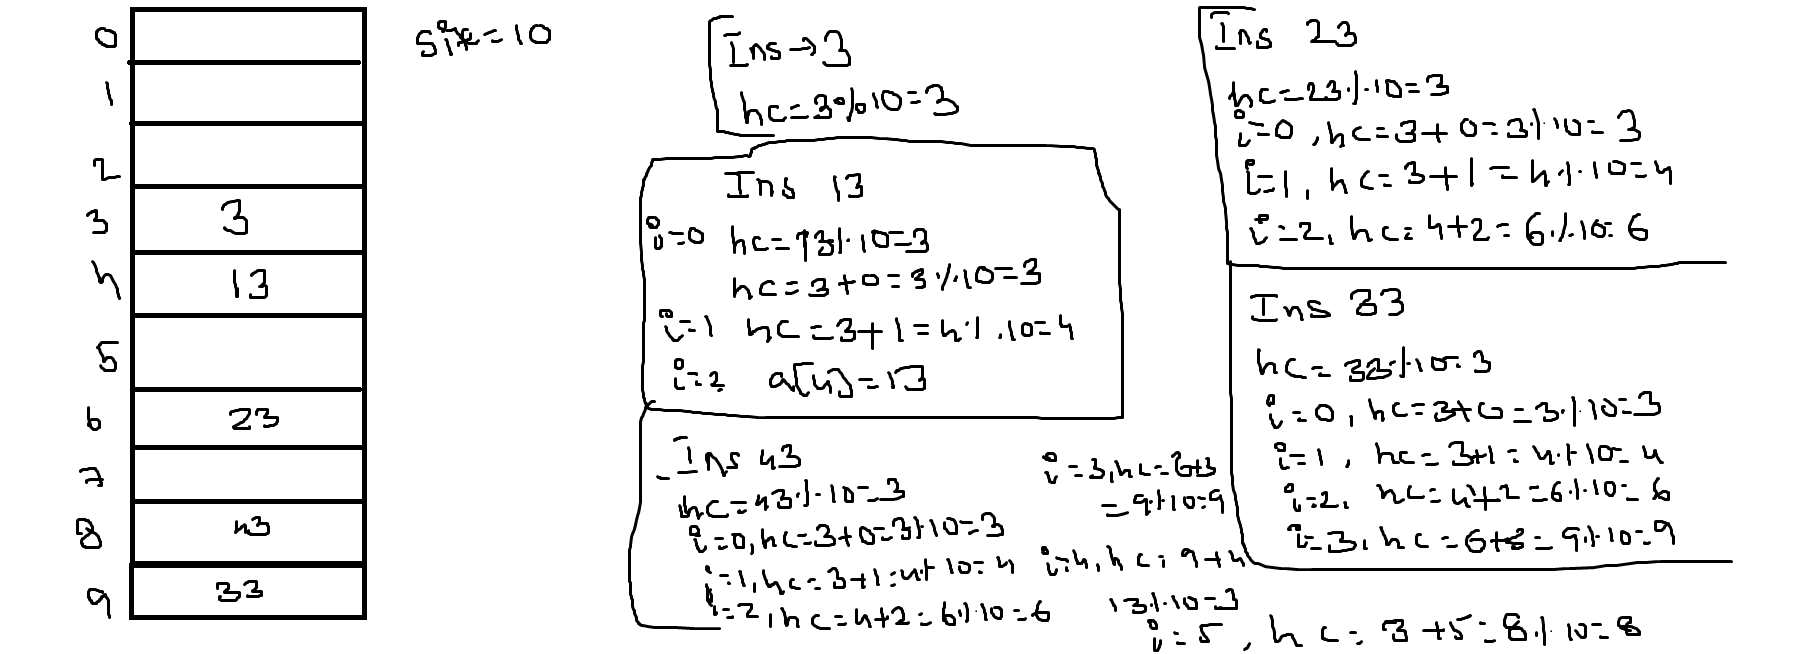 0
1
2
3 3
4 13
5
6 23
7
8 43
9 33
Size=10
Ins→3
hc=3%10=3
Ins 13
i=0 hc=13%10=3
hc=3+0=3%10=3
i=1 hc=3+1=4%10=4
i=2 a[4]=13
Ins 43
hc=43%10=3
i=0, hc=3+0=3%10=3
i=1, hc=3+1=4%10=4
i=2, hc=4+2=6%10=6
i=3, hc=6+3
=9%10=9
i=4, hc=9+4
13%10=3
i=5, hc=3+5=8%10=8
Ins 23
hc=23%10=3
i=0, hc=3+0=3%10=3
i=1, hc=3+1=4%10=4
i=2, hc=4+2=6%10=6
Ins 33
hc=33%10=3
i=0, hc=3+0=3%10=3
i=1, hc=3+1=4%10=4
i=2, hc=4+2=6%10=6
i=3, hc=6+3=9%10=9